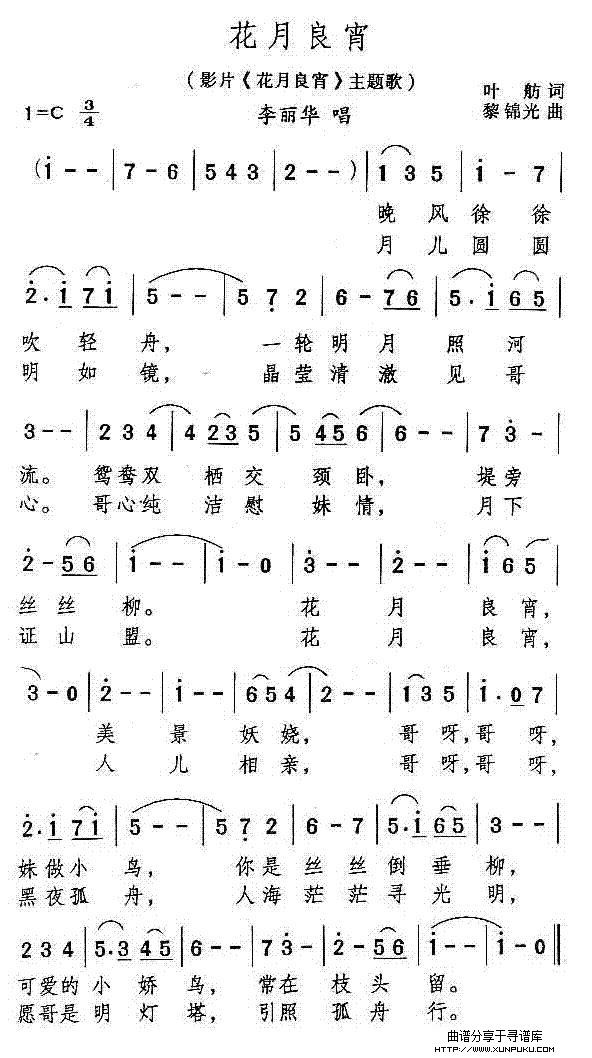 花月良宵
(影片《花月良宵》主题歌)
1=C 3/4
李丽华 唱
叶舫词
黎锦光曲
(i - - | 7 - 6 | 5 4 3 | 2 - - ) | 1 3 5 | i - 7 |
晚风徐徐
月儿圆圆
2̇ . i 7 i | 5 - - | 5 7̣ 2 | 6 - 7 6 | 5 . i 6 5 |
吹轻舟, 一轮明月照河
明如镜, 晶莹清澈见哥
3 - - | 2 3 4 | 4 2 3 5 | 5 4 5 6 | 6 - - | 7 3̇ - |
流。鸳鸯双栖交颈卧, 堤旁
心。哥心纯洁慰妹情, 月下
2̇ - 5 6 | i - - | i - 0 | 3̇ - - | 2̇ - - | i 6 5 |
丝丝柳。花月良宵,
证山盟。花月良宵,
3 - 0 | 2̇ - - | i - - | 6 5 4 | 2 - - | 1 3 5 | i . 0 7 |
美景妖娆, 哥呀,哥呀,
人儿相亲, 哥呀,哥呀,
2̇ . i 7 i | 5 - - | 5 7̣ 2 | 6 - 7 | 5 . i 6 5 | 3 - - |
妹做小鸟, 你是丝丝倒垂柳,
黑夜孤舟, 人海茫茫寻光明,
2 3 4 | 5 . 3 4 5 | 6 - - | 7 3̇ - | 2̇ - 5 6 | i - - | i - 0 ‖
可爱的小娇鸟, 常在枝头留。
愿哥是明灯塔, 引照孤舟行。
曲谱分享于寻谱库
HTTP://WWW.XUNPUKU.COM